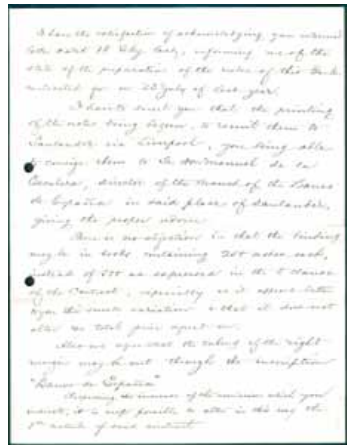 I have the satisfaction of acknowledging your esteemed
letter dated 18 July last, informing me of the
state of the preparation of the notes of this Bank
on 23 July of last year.
I have to direct you that the printing
of the notes being begun, to remit them to
Santander via Liverpool, you being able
to consign them to Sr. Dn. Manuel de la
director of the Branch of the Banco
de España in said place of Santander,
giving the proper advice.
There is no objection in that the binding
may be in books containing 250 notes each,
instead of 500 as expressed in the 5 clause
of the Contract, especially as it
upon the small variation & that it does not
alter the total price agreed on.
Also we agree that the of the right
margin may be cut through the inscription
"Banco de España"
the of the which you
it is not possible to alter in this way the
1st article of said contract.